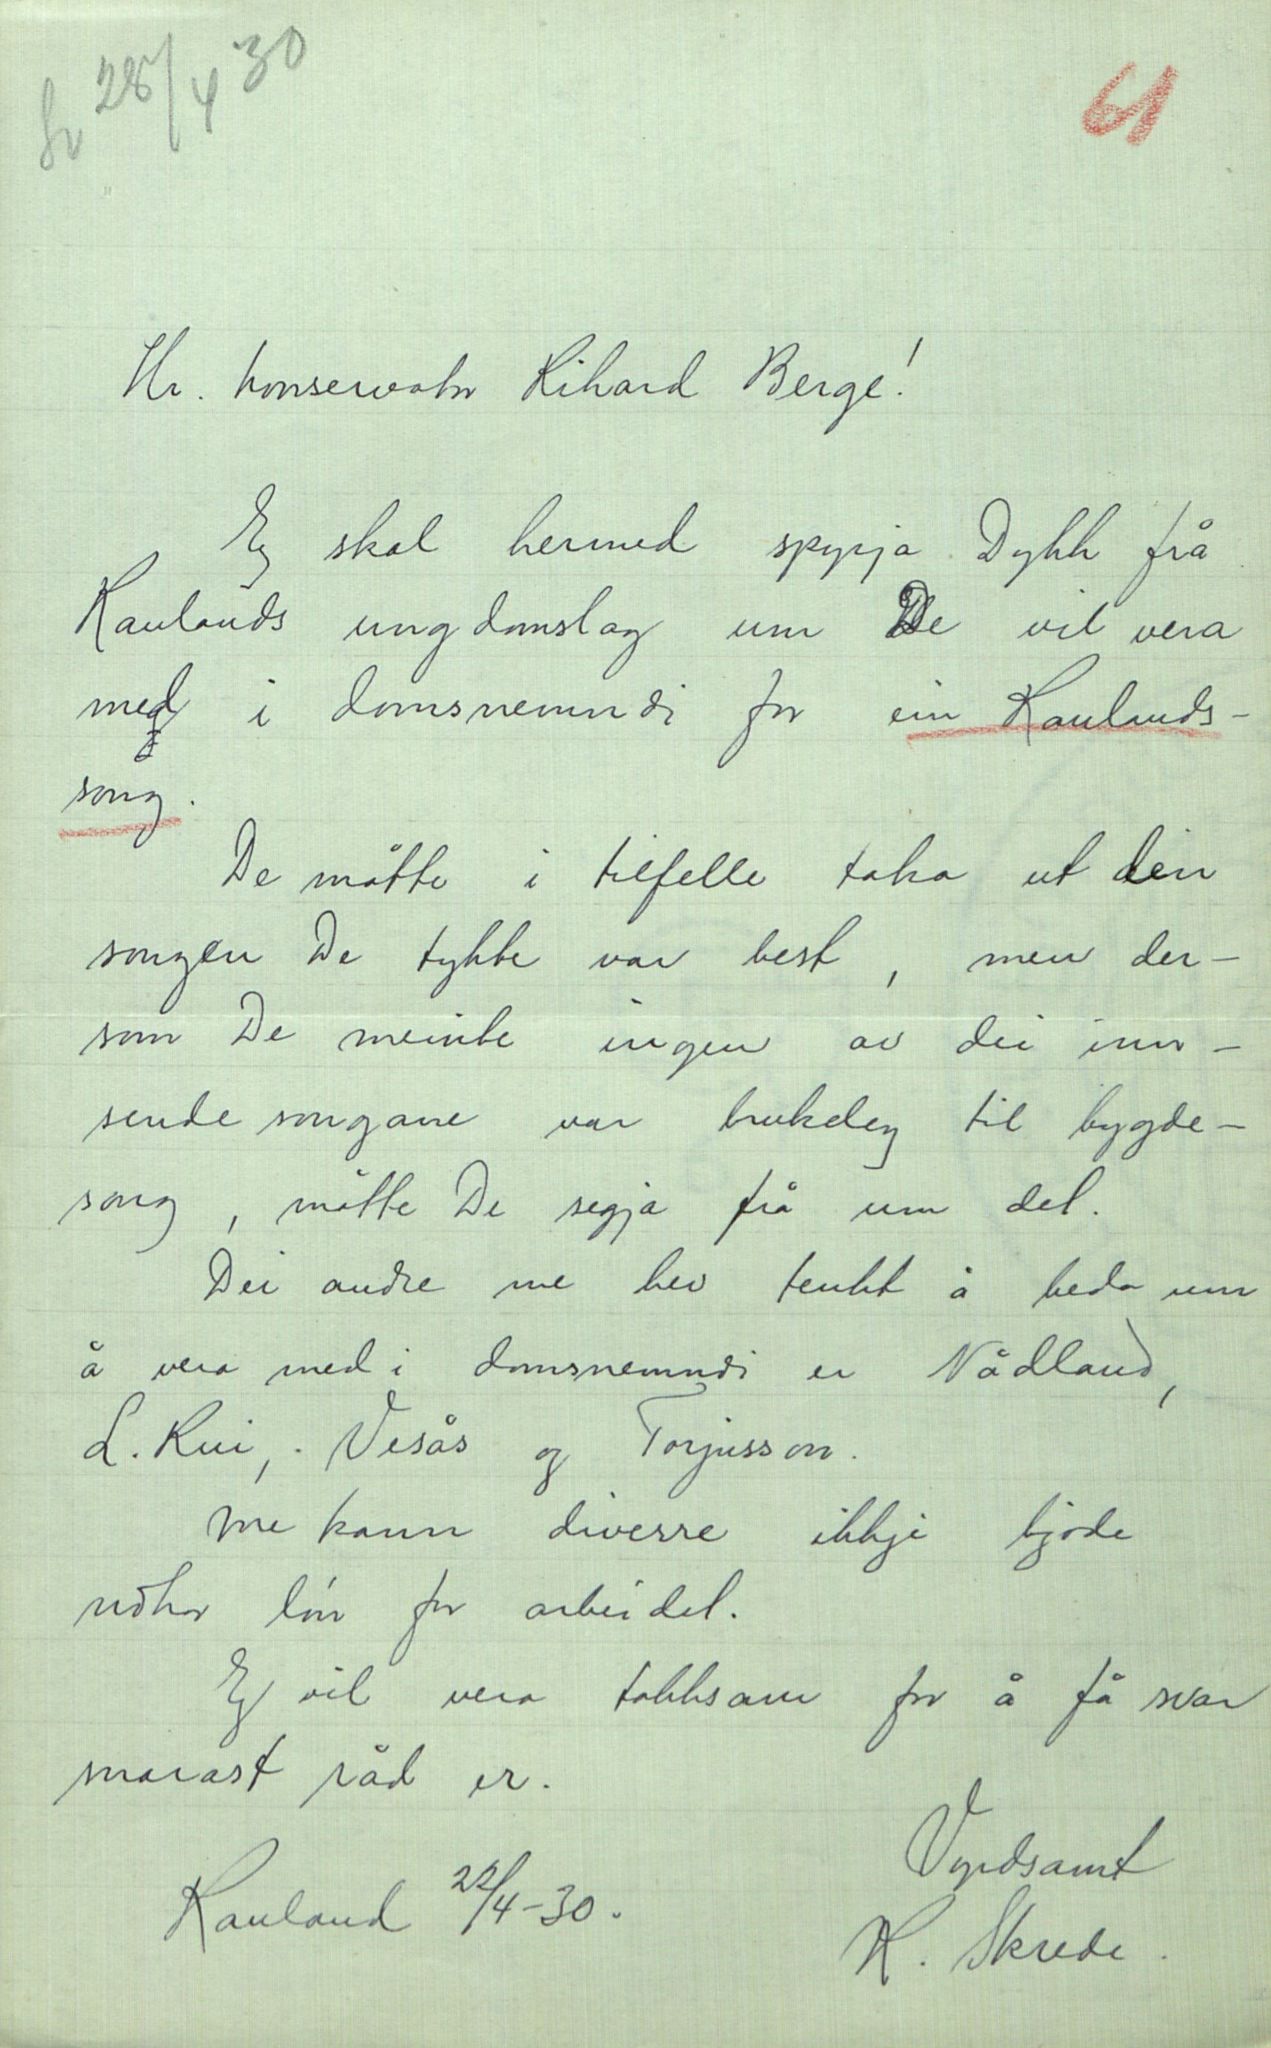 Sv 28/4 30
61
Hr. konservator Rikard Berge!
Eg skal hermed spyrja Dykk frå
Raulands ungdomslag um De vil vera
med i domsnemndi for ein Raulands-
song.
De måtte i tilfelle taka ut den
songen De tykte var best, men der-
som De meinte ingen av dei inn-
sende songane var brukeleg til bygde-
song, måtte De segja frå um det.
Dei andre me hev tenkt å beda um
å vera med i domsnemndi er Nådland,
L. Rui, Vesås og Torjusson.
Me kann diverre ikkje bjode
nokor løn for arbeidet.
Eg vil vera takksam for å få svar
snarast råd er.
Vyrdsamt
Rauland 22/4-30.
K. Skrede.